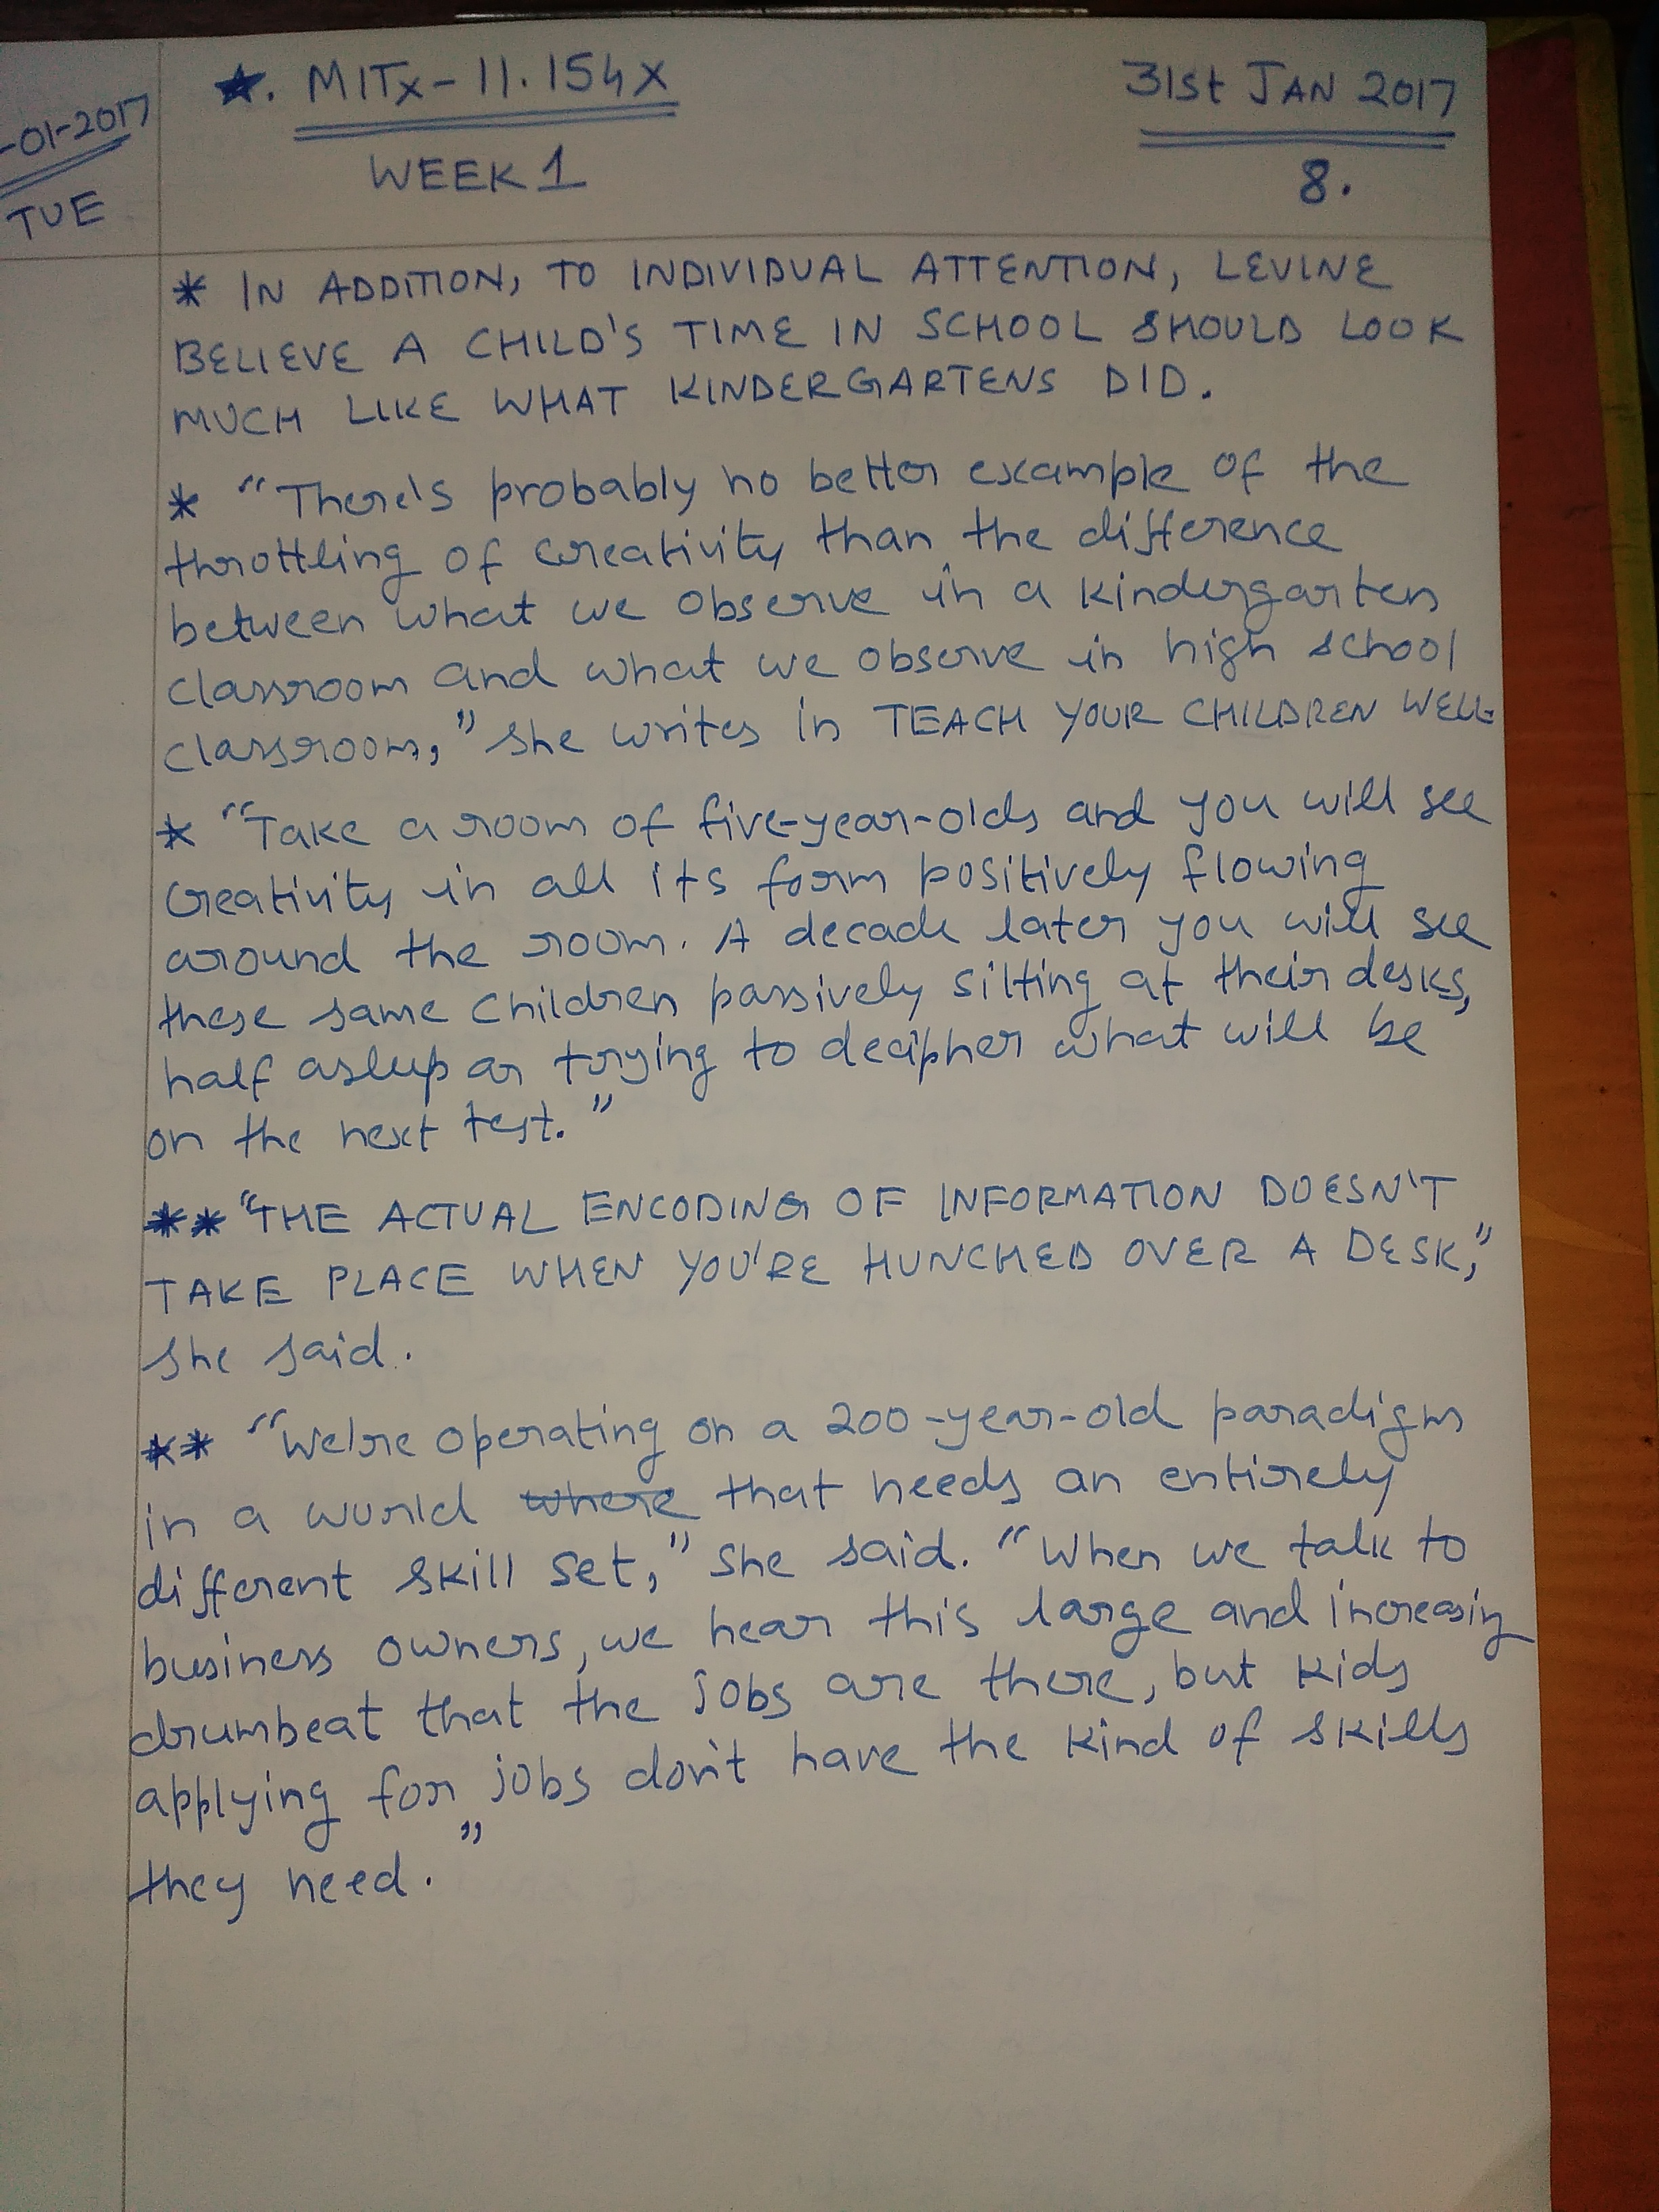 ★. MITx-11.154x
31st JAN 2017
-01-2017
WEEK 1
8.
TUE
* IN ADDITION, TO INDIVIDUAL ATTENTION, LEVINE
BELIEVE A CHILD'S TIME IN SCHOOL SHOULD LOOK
MUCH LIKE WHAT KINDERGARTENS DID.
* "There's probably no better example of the
throttling of creativity than the difference
between what we observe in a kindergarten
classroom and what we observe in high school
classroom," she writes in TEACH YOUR CHILDREN WELL
* "Take a room of five-year-olds and you will see
creativity in all its form positively flowing
around the room. A decade later you will see
these same children passively sitting at their desks,
half asleep or trying to decipher what will be
on the next test."
** "THE ACTUAL ENCODING OF INFORMATION DOESN'T
TAKE PLACE WHEN YOU'RE HUNCHED OVER A DESK,"
she said.
** "We're operating on a 200-year-old paradigm
in a world where that needs an entirely
different skill set," she said. "When we talk to
business owners, we hear this large and increasing
drumbeat that the jobs are there, but kids
applying for jobs don't have the kind of skills
they need."